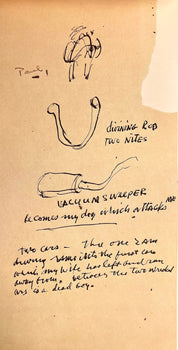 divining rod
two nites
VACUUM SWEEPER
becomes my dog which attacks me
Two cars - The one I am
driving rams into the first car
which my wife has left and ran
away from. between the two wrecked
cars is a dead boy.